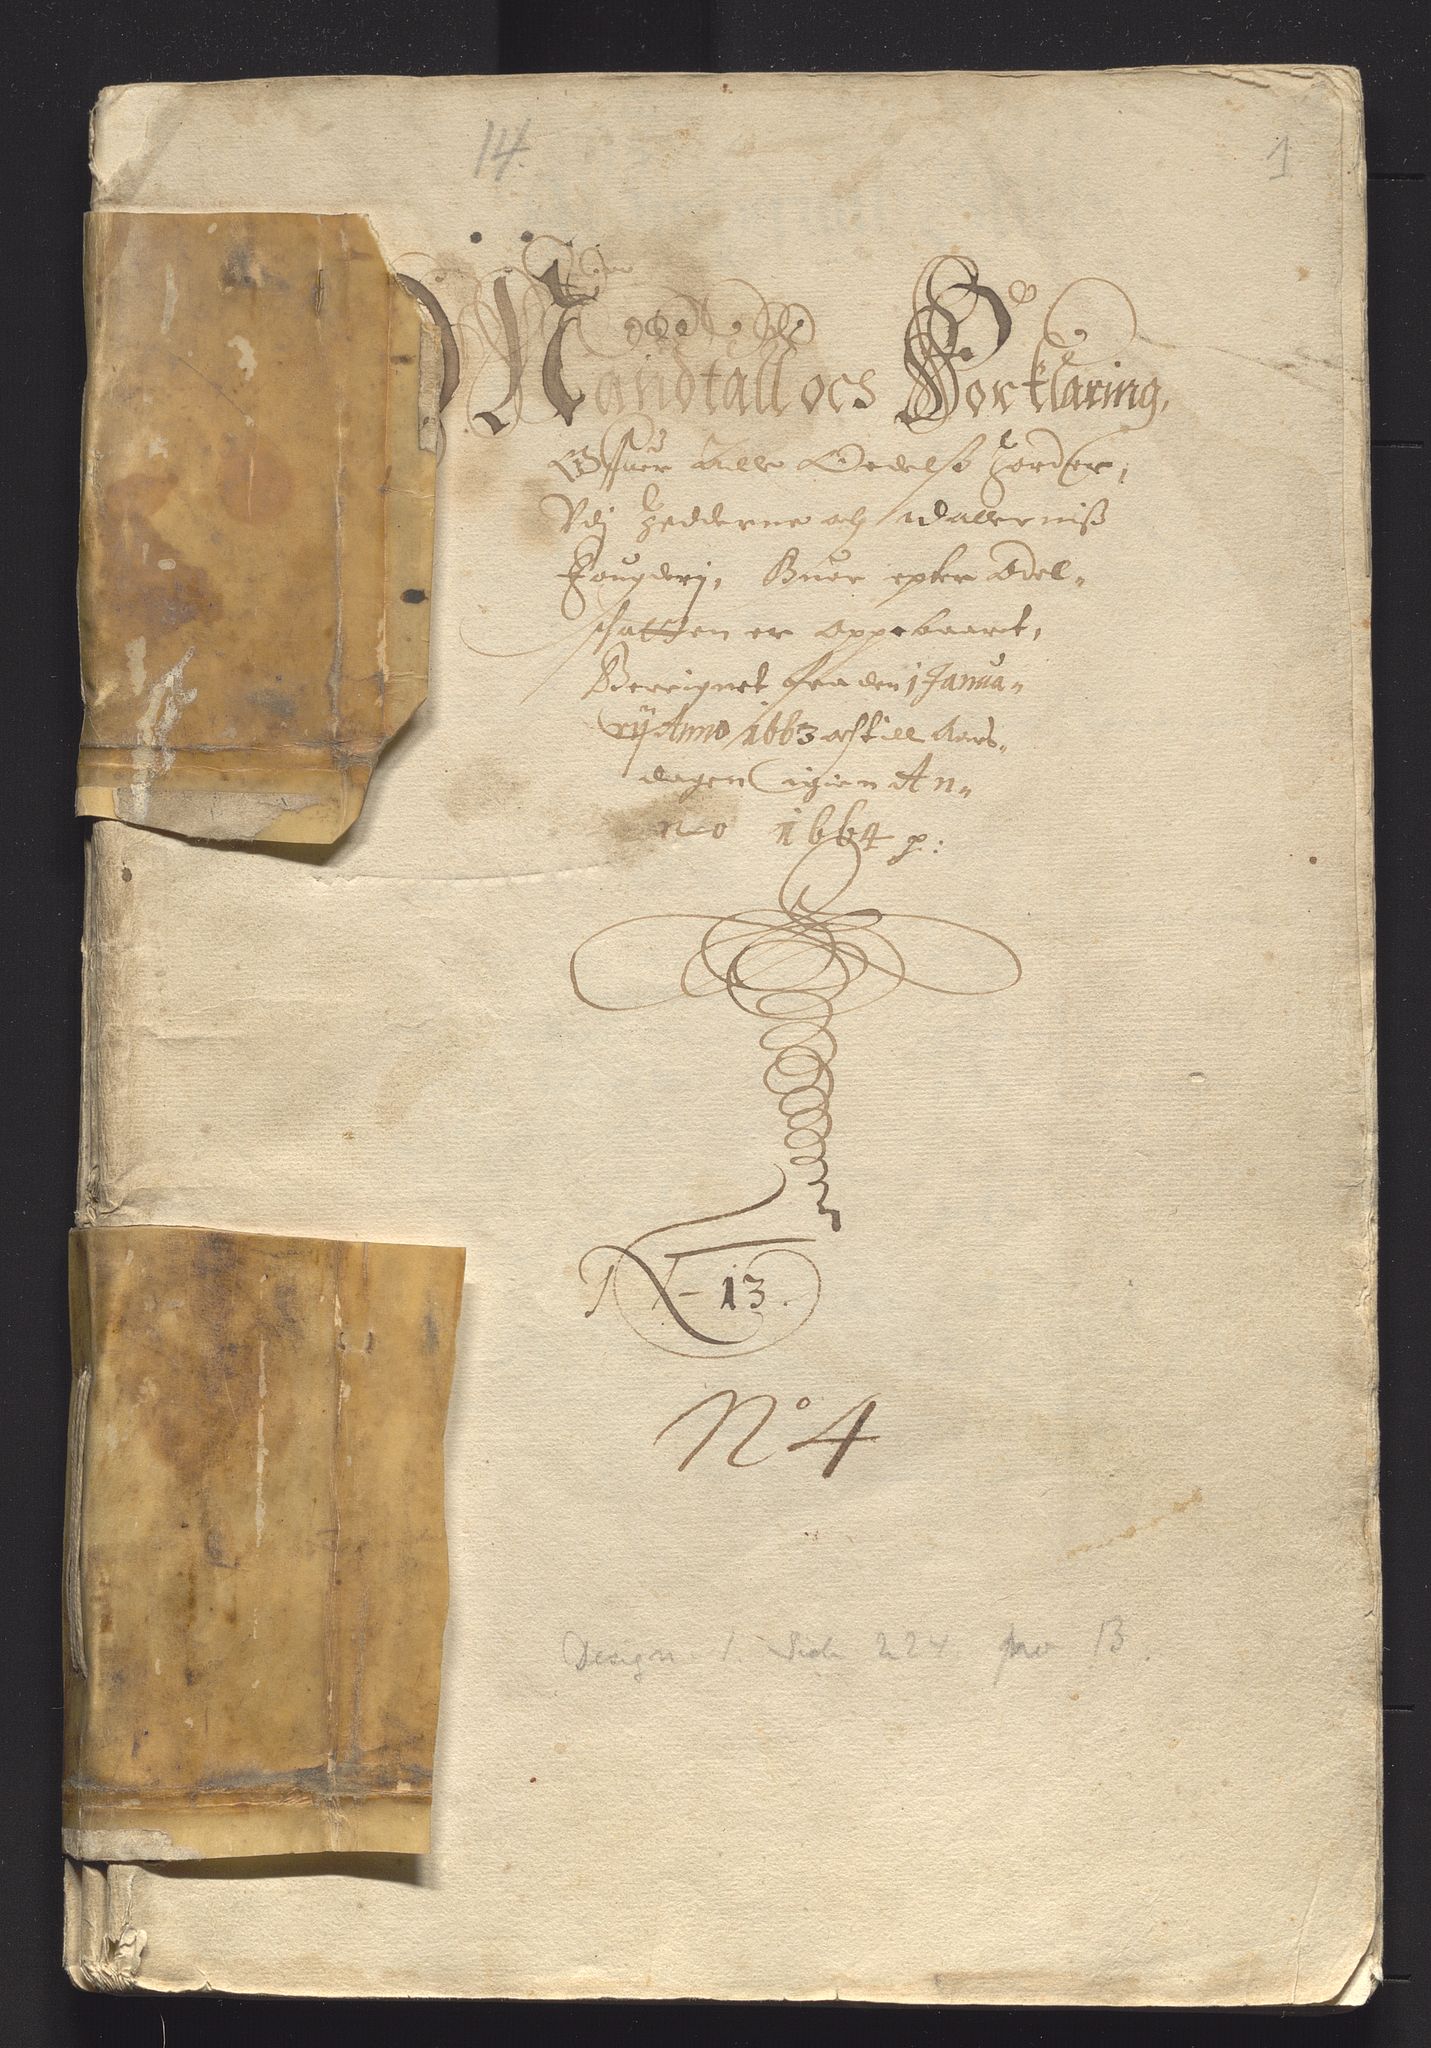 14.
1
Mandtall och Forklaring,
Offuer Alle Oedelss Jorder,
Vdj Jedderne och Dallerniss
Fougderj, Huor epter Odel-
schatten er oppebaaret,
Bereignet fra den 1 Janua-
rij Anno 1663 och till Aars-
dagen igien An-
no 1664 p:
13.
No 4
Design. 1. Side 224. pro 13.